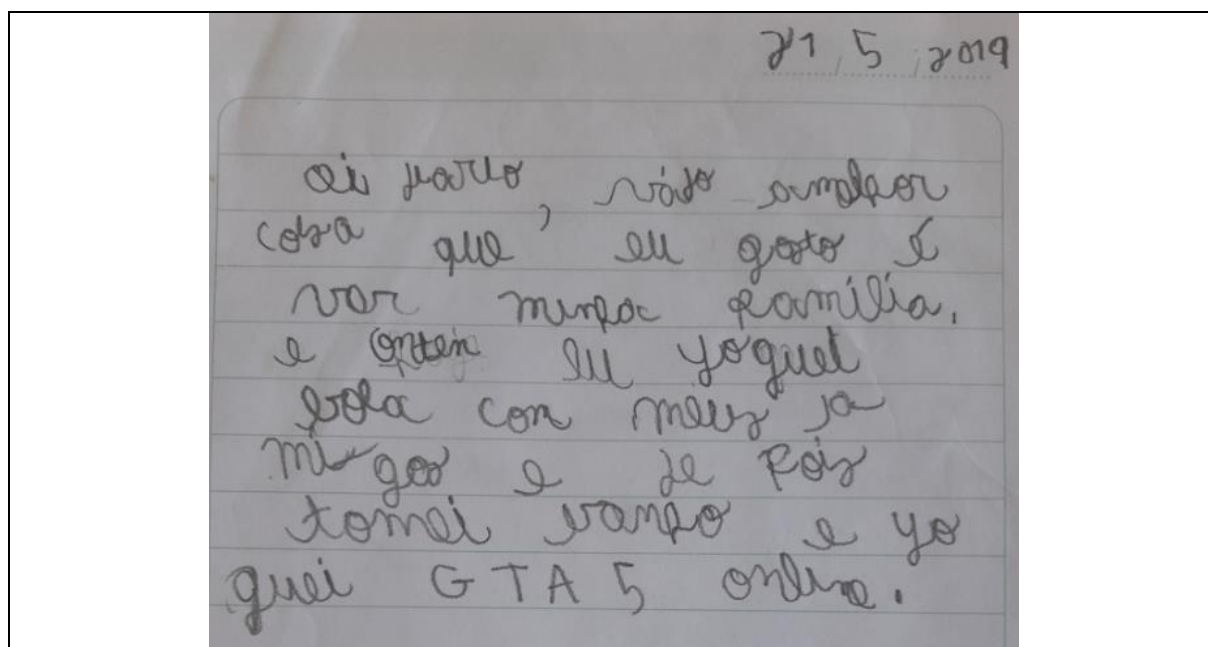 21 5 2019
oi
cosa que eu gosto é
ver minha família.
e onten eu yoguei
bola con meus a
migos e de pois
tomei banho e yo
guei GTA 5 online.